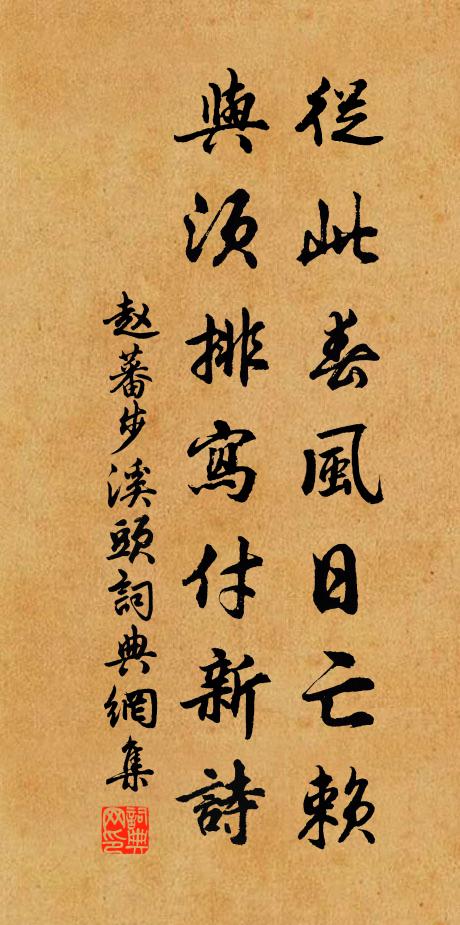 從此春風日亡賴
與須排寫付新詩
赵蕃步溪頭詞典網集
詞典网印